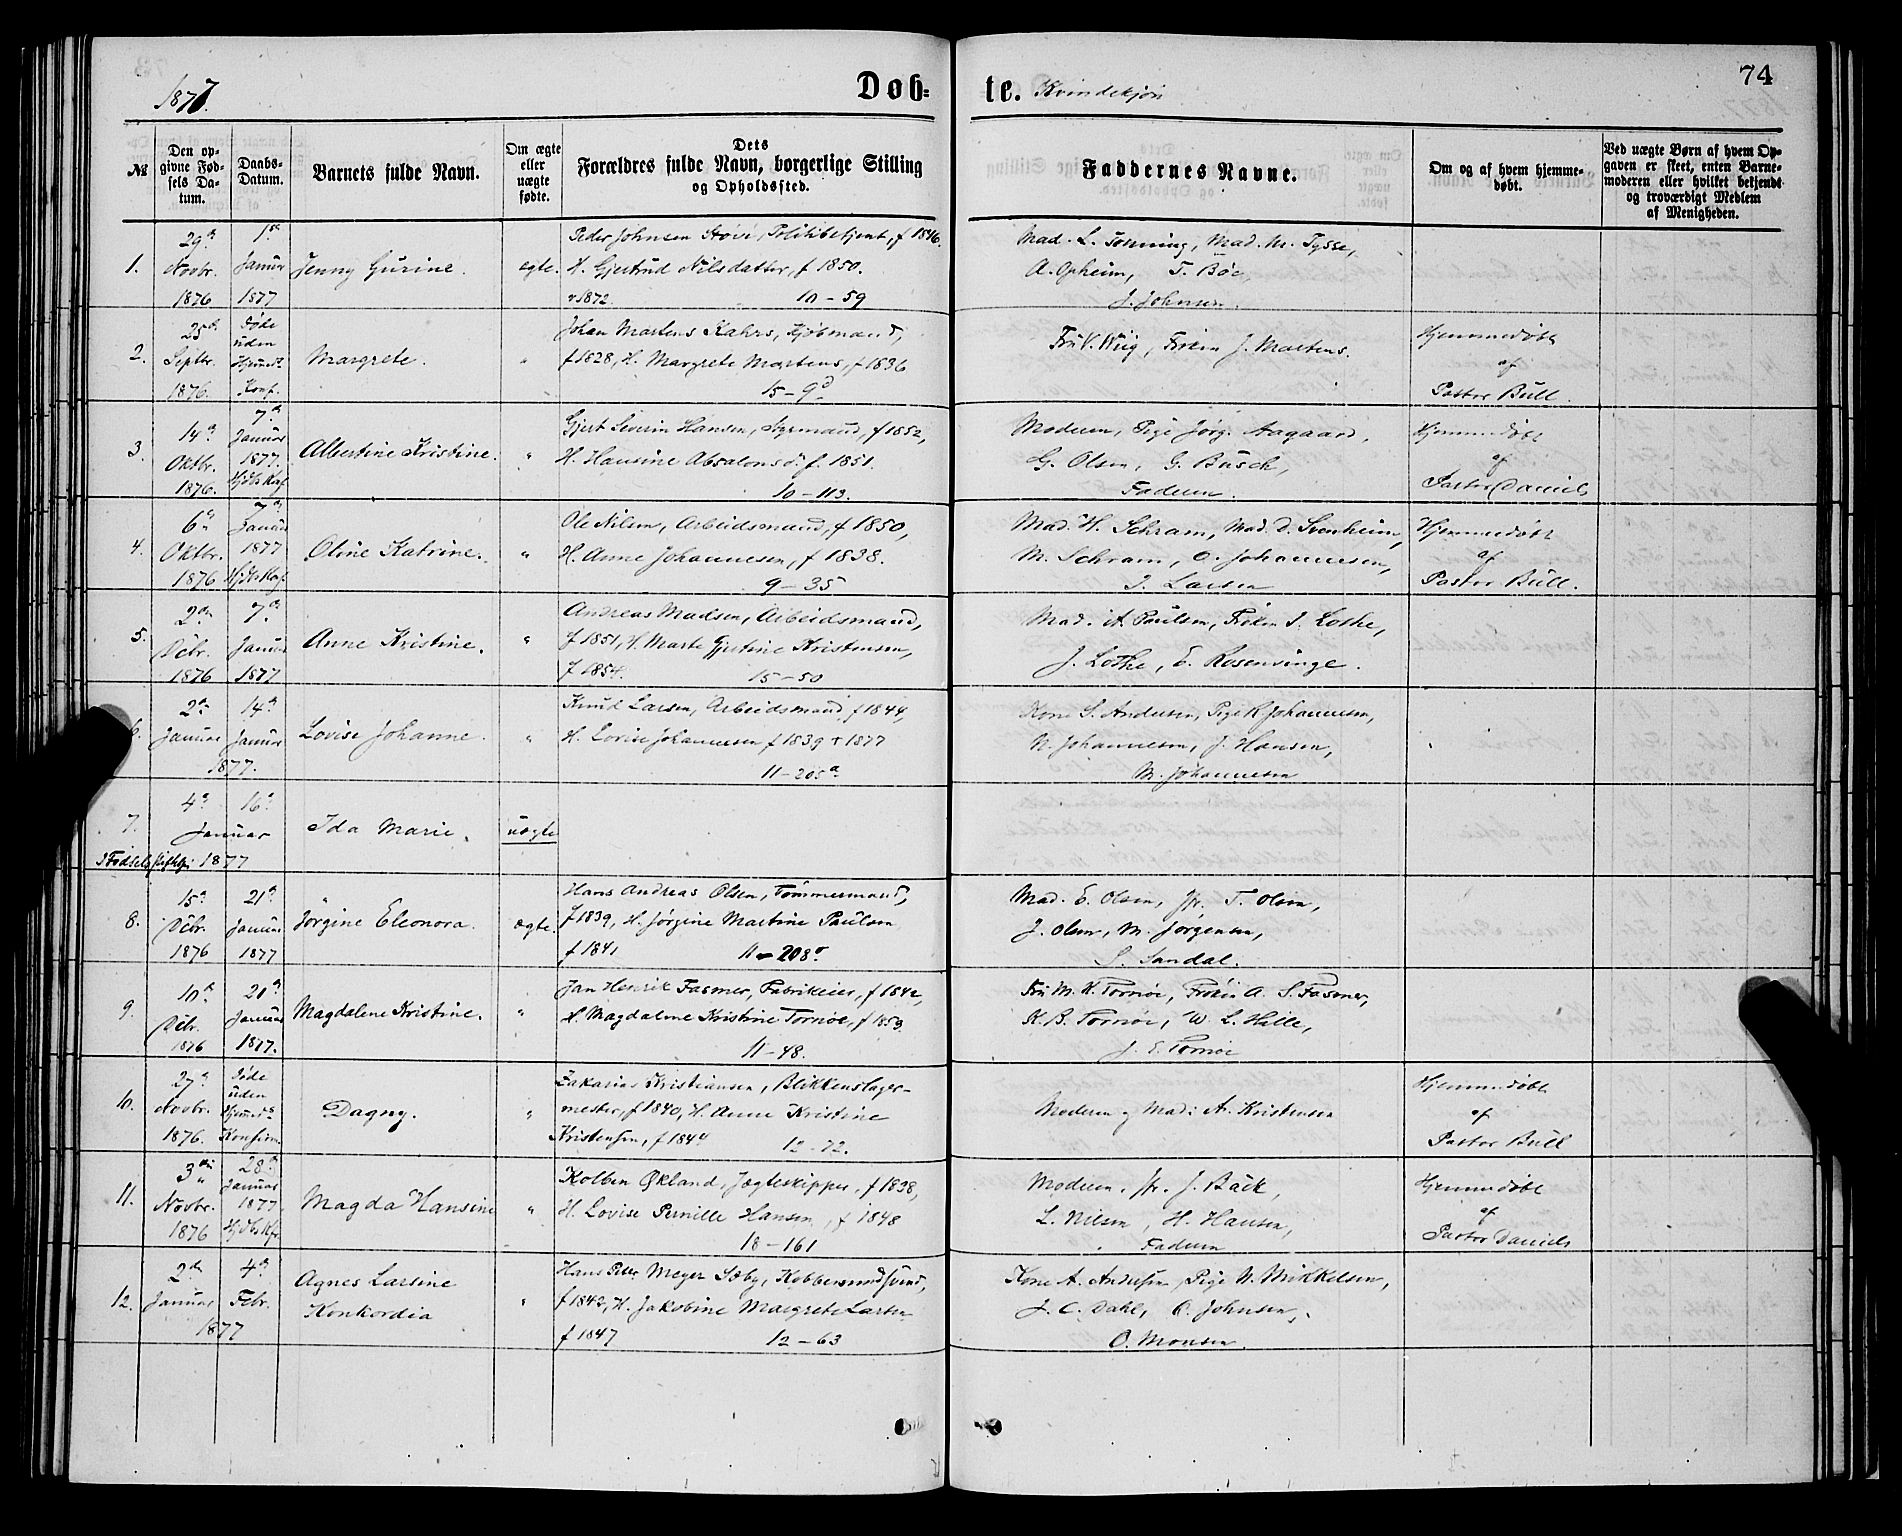 1877.
Døb-
te. Kvindekjøn
74
№
Den op-
givne Fød-
sels Da-
tum.
Daabs-
Datum.
Barnets fulde Navn.
Om ægte
eller
uægte
fødte.
Dets
Forældres fulde Navn, borgerlige Stilling
og Opholdssted.
Faddernes Navne.
Om og af hvem hjemme-
døbt.
Ved uægte Børn af hvem Op-
gaven er skeet, enten Barne-
moderen eller hvilket bekjendt
og troværdigt Medlem
af Menigheden.
1.
29
Novbr.
1876
1
Januar
1877
Jenny Gurine.
egte.
Peder Johnsen, Politibetjent, f 1846.
H. Gjertrud Nilsdatter, f 1850.
v 1872. 10-59
Mad. L. Tonning, Mad. M. Tysse,
A. Opheim, T. Böe,
J. Johnsen.
2.
25
Septbr.
1876.
Døde
uden
Konf.
Margrete.
"
Johan Martens Kahrs, Kjøbmand,
f 1828, H. Margrete Martens, f 1836
15-9
Fru V. Wiig, Frøken J. Martens.
Hjemmedøbt
af
Pastor Bull.
3.
14
Oktbr.
1876.
7
Januar
1877.
Albertine Kristine.
"
Gjert Severin Hansen, Styrmand, f 1852,
H. Hansine Absalonsd. f. 1851.
10-113.
Moderen, Pige Jørg. Aagaard,
G. Olsen, G. Busch,
Faderen.
Hjemmedøbt
af
Pastor Daniels
4.
6
Oktbr.
1876
7
Januar
1877
Oline Katrine.
"
Ole Nilsen, Arbeidsmand, f 1850,
H. Anne Johannesen, f 1838.
9-35
Mad. H. Schram, Mad. D. Svenheim,
M. Schram, O. Johannesen,
J. Larsen
Hjemmedøbt
af
Pastor Bull.
5.
2
Dcbr.
1876
7
Januar
1877
Anne Kristine.
"
Andreas Madsen, Arbeidsmand,
f 1851, H. Marte Gjertine Kristensen,
f 1854. 15-50
Mad. A. Paulsen, Frøken J. Lothe,
J. Lothe, E. Rosenvinge.
6.
2
Januar
14
Januar
1877.
Lovise Johanne.
"
Knud Larsen, Arbeidsmand, f 1844,
H. Lovise Johannesen f 1839 † 1877
11-205a
Kone S. Andersen, Pige R Johannesen,
N. Johannesen, J. Hansen,
M. Johannesen
7.
4
16
Januar
Fødselsstiftelsen 1877
Ida Marie.
uægte
8.
15
Dcbr.
1876
21
Januar
1877
Jørgine Eleonora.
ægte.
Hans Andreas Olsen, Tømmermand,
f 1839, H. Jørgine Martine Paulsen
f 1841 11-208
Mad. E. Olsen, Jfr. T. Olsen,
J. Olsen, M. Jørgensen,
S. Sandal.
9.
10
Dcbr.
1876
21
Januar
1877.
Magdalene Kristine.
"
Jan Henrik Fasmer, Fabrikeier, f 1842,
H. Magdalene Kristine Tornöe, f 1853
11-48.
Fru M. K. Tornöe, Frøken A. S. Fasmer,
K. B. Tornöe, W. L. Hille,
J. E. Tornöe
10.
27
Novbr.
1876.
Døde
uden
Konfirm.
Dagny.
"
Zakarias Kristiansen, Blikkenslager-
mester, f 1840, H. Anne Kristine
Kristensen, f 1844 12-72.
Moderen og Mad: A. Kristensen
Hjemmedøbt
af
Pastor Bull
11.
3
Novbr.
1876
28
Januar
1877
Magda Hansine
"
Kolben Økland, Jægteskipper, f 1838,
H. Lovise Pernille Hansen, f 1848
18-161
Moderen, Jfr. J. Bäck,
L. Nilsen, H. Hansen,
Faderen
Hjemmedøbt
af
Pastor Daniels
12.
2
Januar
4
Febr.
1877
Agnes Larsine
Konkordia
"
Hans Peter Meyer Sæby, Kobbersmedsvend,
f 1842, H. Jakobine Margrete Larsen
f 1847 12-63
Kone A. Andersen, Pige N. Mikkelsen,
J. C. Dahl, O. Johnsen,
O. Monsen.